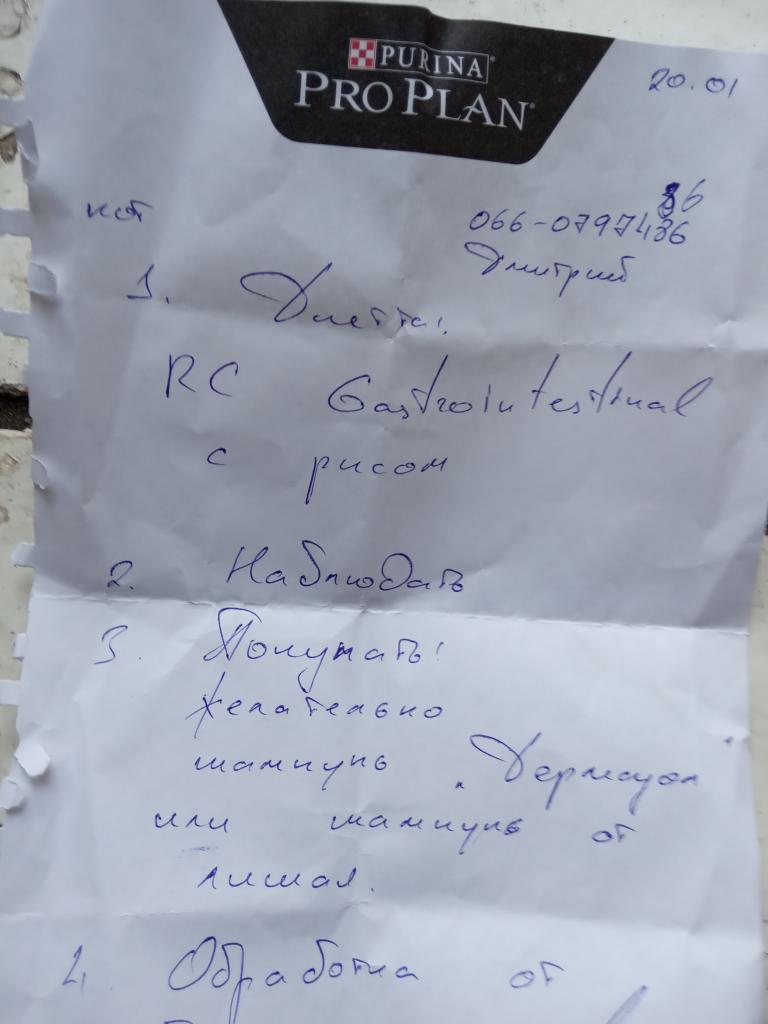 PURINA
PRO PLAN
20.01
кот
86
066-0797486
Дмитрий
1. Диетта!
RC Gastrointestinal
с рисом
2. Наблюдать
3. Покупать!
желательно
шампунь "Дермазол"
или шампунь от
лишая.
4. Обработка от